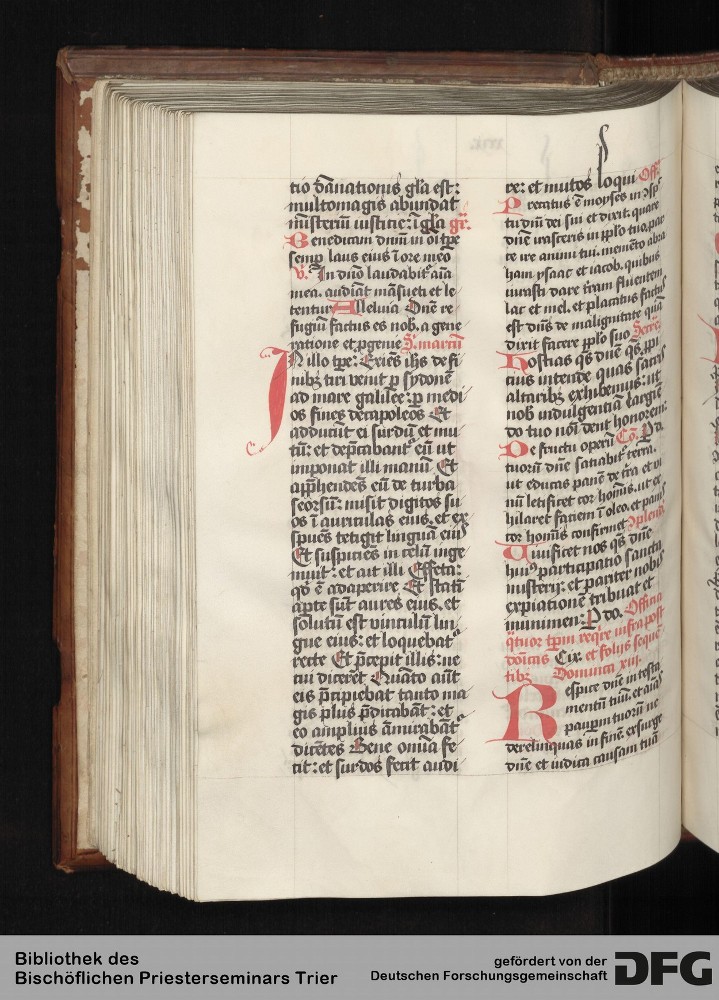 tio dānationis gl̄a est:
multomagis abundat
mīsteriū iusticie: ī gl̄a gr̄.
Benedicam dnm̄ in oī tp̄e
semp laus eius ī ore meo
v̄. In dn̄o laudabit᷑ aīa
mea. audiāt māsueti et le
tentur Alleluia Dn̄e re
fugiū factus es nob. a gene
ratione et p̱genie S. marcū
In illo tp̄e: Exiēs ih̄s de fi
nibꝫ tiri venit ꝑ sydonē
ad mare galilee: ꝑ medi
os fines decapoleos Et
adducūt ei surdū et mu
tū: et dep̄cabant᷑ eū ut
imponat illi manū Et
app̄hendēs eū de turba
seorsū: misit digitos su
os ī auriculas eius. et ex
spuēs tetigit linguā eiꝰ
Et suspiciēs in celū inge
muit: et ait illi Effeta:
qd̄ ē adaperire Et statī
apte sūt aures eius. et
solutū est vinculū lin
gue eius: et loquebat᷑
recte Et p̄cepit illis: ne
cui dicerēt Quāto aūt
eis p̄cipiebat tanto ma
gis plus p̄dicabāt: et
eo amplius āmirabāt᷑
dicētes Bene omīa fe
cit: et surdos fecit audi
re: et mutos loqui Off.
Precatus ē moyses in ↄsp̄c
tu dn̄i dei sui et dixit. quare
dn̄e irasceris in pp̄lo tuo. par
ce ire animi tui. memēto abra
ham ysaac et iacob. quibus
iurasti dare terram fluentem
lac et mel. et placatus factus
est dn̄s de malignitate quā
dixit facere pp̄lo suo Secr̄.
Hostias qs̄ dn̄e qs̄ ppi
cius intende quas sacris
altaribꝫ exhibemus: ut
nob indulgentiā largiē
do tuo noī dent honorem:
De fructu operū Co. P do.
tuorū dn̄e satiabit᷑ terra.
ut educas panē de tr̄a et vi
nū letificet cor hoīs. ut ex
hilaret faciem ī oleo. et panis
cor hoīs confirmet ↄplenda
Viuificet nos qs̄ dn̄e
huiꝰ participatio sancta
misterij: et pariter nobis
expiatione tribuat et
munimen: P do. Officia
qtuor tpm̄ reqre infra post
dōicas Cix. et folijs seque
tibꝫ Domīnica xiii.
Respice dn̄e in testa
mentū tuū. et aīas
pauperum tuorū ne
derelinquas in finē. exsurge
dn̄e et iudica causam tuā
Bibliothek des
Bischöflichen Priesterseminars Trier
gefördert von der
Deutschen Forschungsgemeinschaft
DFG